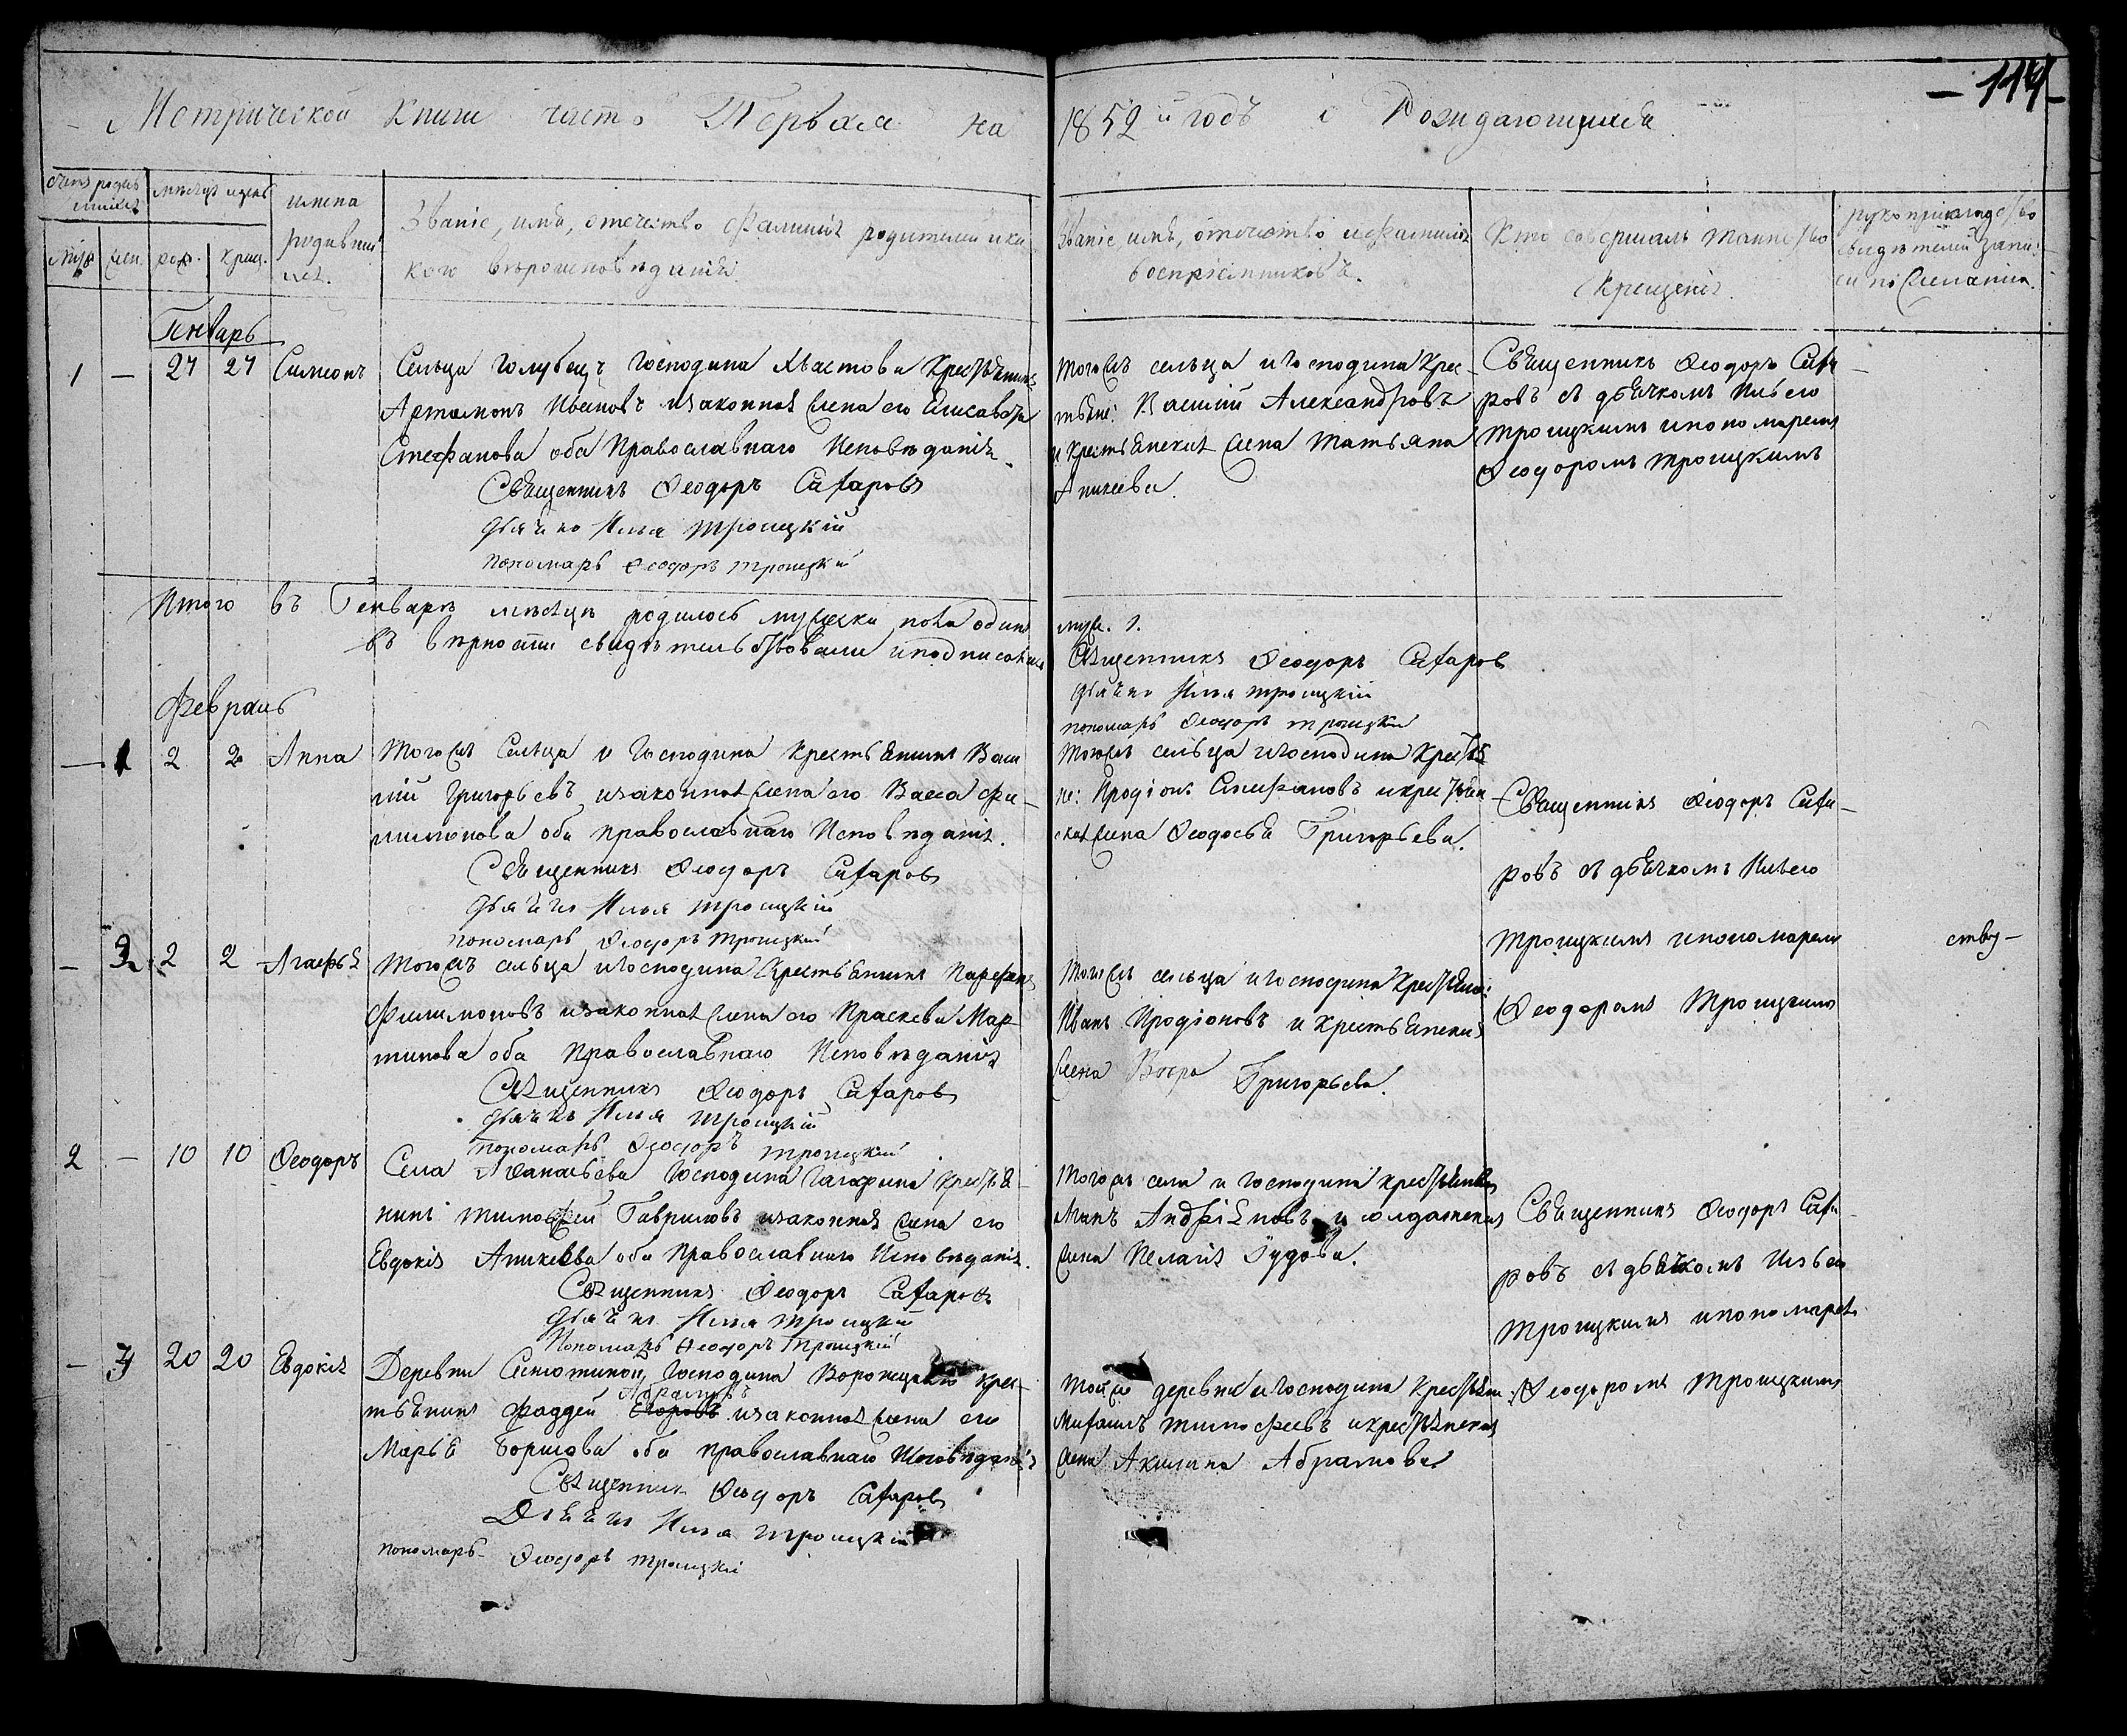 — 114 —
Метрической Книги часть Первая на 1852 й годъ о Рождающихся
счетъ родив
шихся
мѣсяцъ и день
имена
родивших
ся.
Званіе, имя, отечество фамилія родителей и ка
кого вѣроисповѣданія.
Званіе имя, отечество и фамилія
воспріемниковъ.
Кто совершалъ таинство
крещенія.
рукоприкладство
свидѣтелей запи:
си по желанію.
муж жен. рож. крещ.
Генварь
1 — 27 27 Симеонъ
Сельца Голубецъ Господина Хвастова Крестьянинъ
Артамонъ Ивановъ и законная жена его Елисавета
Стефанова оба Православнаго Исповѣданія.
Священникъ Ѳеодоръ Сахаровъ
Дьячко Илья Троицкій
пономарь Ѳеодоръ Троицкій
Тогожъ сельца и Господина Крес-
тьяни: Василій Александровъ
и Крестьянская жена Татьяна
Аникеева.
Священникъ Ѳеодоръ Саха
ровъ съ дьячкомъ Ильею
Троицкимъ и пономаремъ
Ѳеодоромъ Троицкимъ
Итого въ Генварѣ мѣсяцѣ родилось мужеска пола одинъ
въ вѣрности свидѣтельствовали и подписались
муж. 1.
Священникъ Ѳеодоръ Сахаровъ
Дьячко Илья Троицкій
пономарь Ѳеодоръ Троицкій
Февраль
— 1 2 2 Анна
Тогожъ Сельца и Господина Крестьянинъ Васи
лій Григорьевъ и законная жена его Васса Фи-
лимонова оба Православнаго Исповѣданія.
Священникъ Ѳеодоръ Сахаровъ
Дьячко Илья Троицкій
пономарь Ѳеодоръ Троицкій
Тогожъ сельца и Господина Крестья
не: Иродіонъ Стефановъ и крестьян
ская жена Ѳеодосья Григорьева.
Священникъ Ѳеодоръ Саха-
ровъ съ дьячкомъ Ильею
Троицкимъ и пономаремъ
Ѳеодоромъ Троицкимъ
ству-
— 2 2 2 Агафья
Тогожъ сельца и Господина Крестьянинъ Парфенъ
Филимоновъ и законная жена его Праскева Мар
тинова оба Православнаго Исповѣданія
Священникъ Ѳеодоръ Сахаровъ
Дьячкъ Илья Троицкій
пономарь Ѳеодоръ Троицкій
Тогожъ сельца и Господина Крестьяни:
Иванъ Иродіоновъ и Крестьянская
жена Вѣра Григорьева.
2 — 10 10 Ѳеодоръ
Села Аѳанасьева Господина Гагарина Крестья-
нинъ Тимофей Гавриловъ и законная жена его
Евдокія Аникеева оба Православнаго Исповѣданія.
Священникъ Ѳеодоръ Сахаровъ
Дьячко Илья Троицкій
Пономарь Ѳеодоръ Троицкій
Тогожъ села и Господина крестьянинъ
Андріяновъ и солдатская
жена Пелагія Гудова.
Священникъ Ѳеодоръ Саха
ровъ съ дьячкомъ Ильею
Троицкимъ и пономаремъ
Ѳеодоромъ Троицкимъ
— 3 20 20 Евдокія
Деревни Сенютиной, Господина Воронецкаго крес-
Абрамовъ
тьянинъ Фаддей Егоровъ и законная жена его
Марья Борисова оба Православнаго Исповѣданія
Священникъ Ѳеодоръ Сахаровъ
Дьячко Илья Троицкій
пономарь Ѳеодоръ Троицкій
Тойже деревни и Господина Крестьянин:
Михаилъ Тимофеевъ и крестьянская
жена Акилина Абрамова